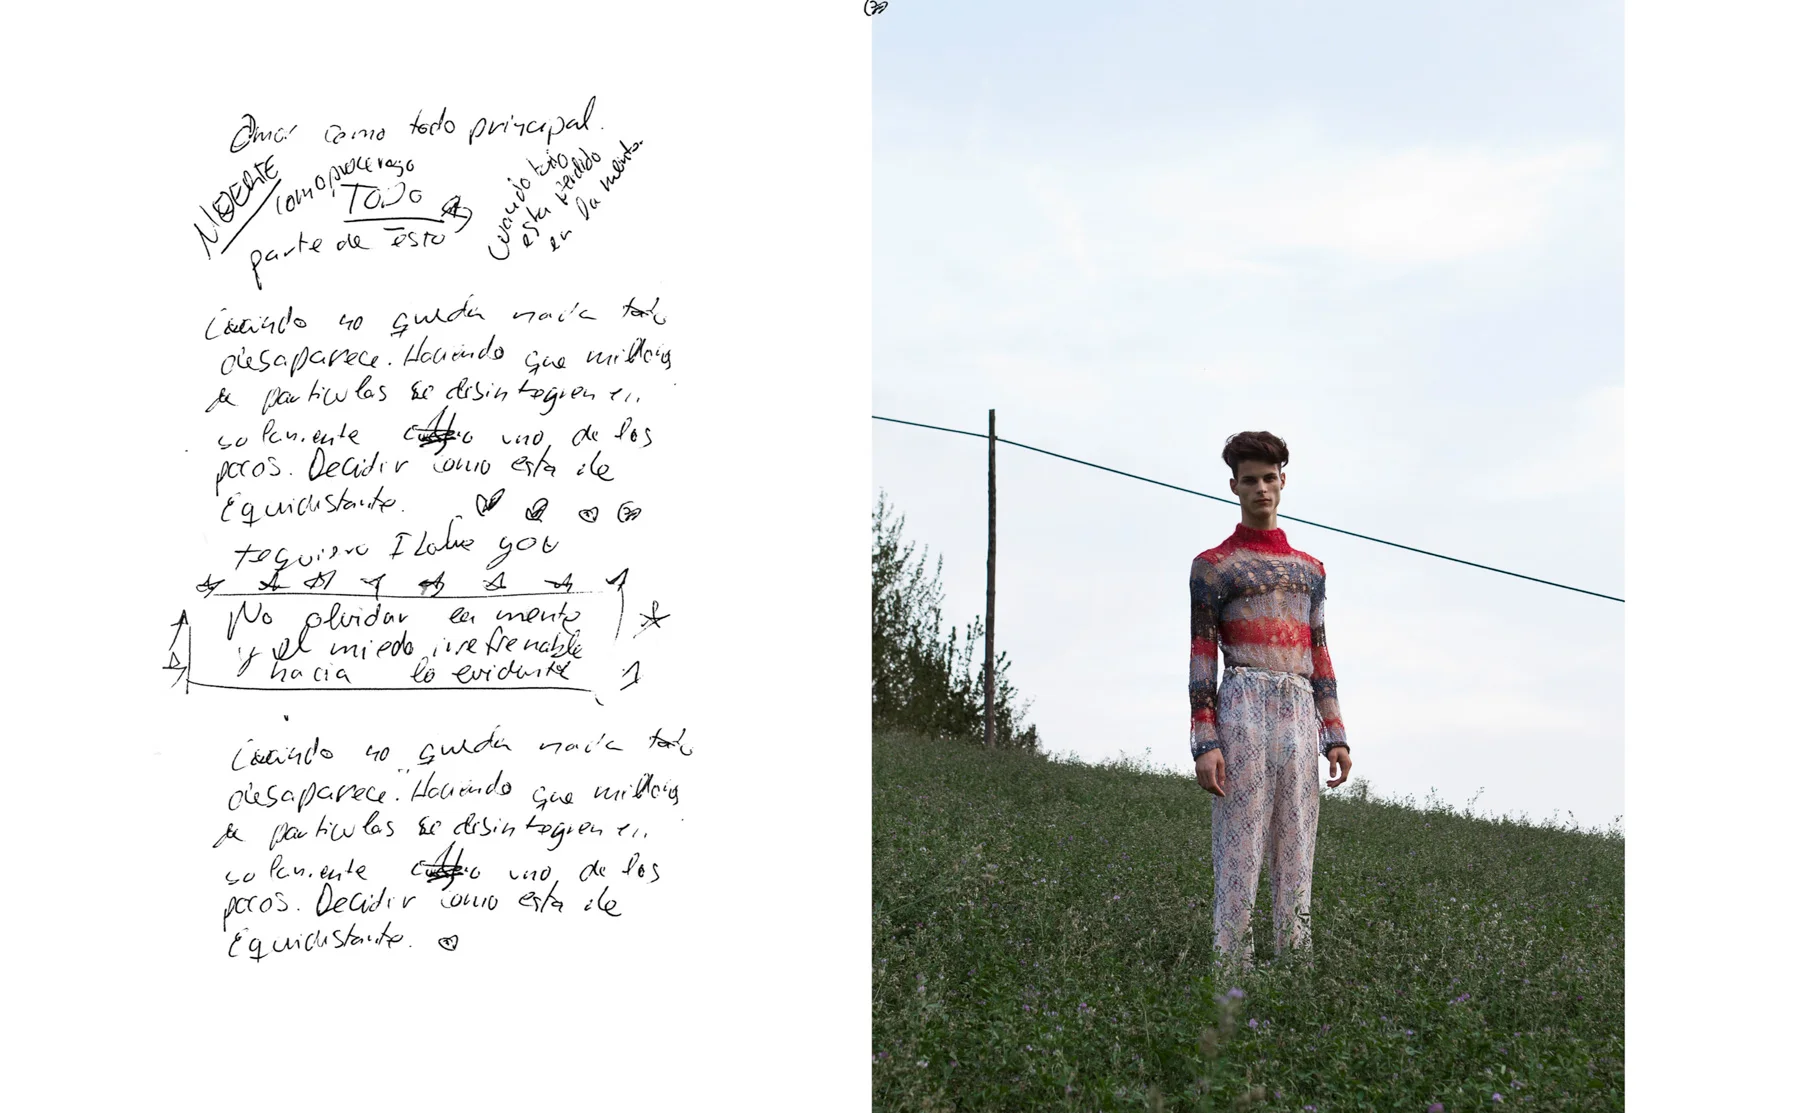 Amar como todo principal.
MUERTE
como proceso
TODO
parte de esto
cuando todo
esta perdido
en la mente.
Cuando no queda nada todo
desaparece. Haciendo que millones
de particulas se desintegren en
solamente uno de los
pocos. Decidir como esta de
Equidistante.
te quiero I love you
No olvidar la mente
y el miedo irrefrenable
hacia lo evidente
Cuando no queda nada todo
desaparece. Haciendo que millones
de particulas se desintegren en
solamente uno de los
pocos. Decidir como esta de
Equidistante.